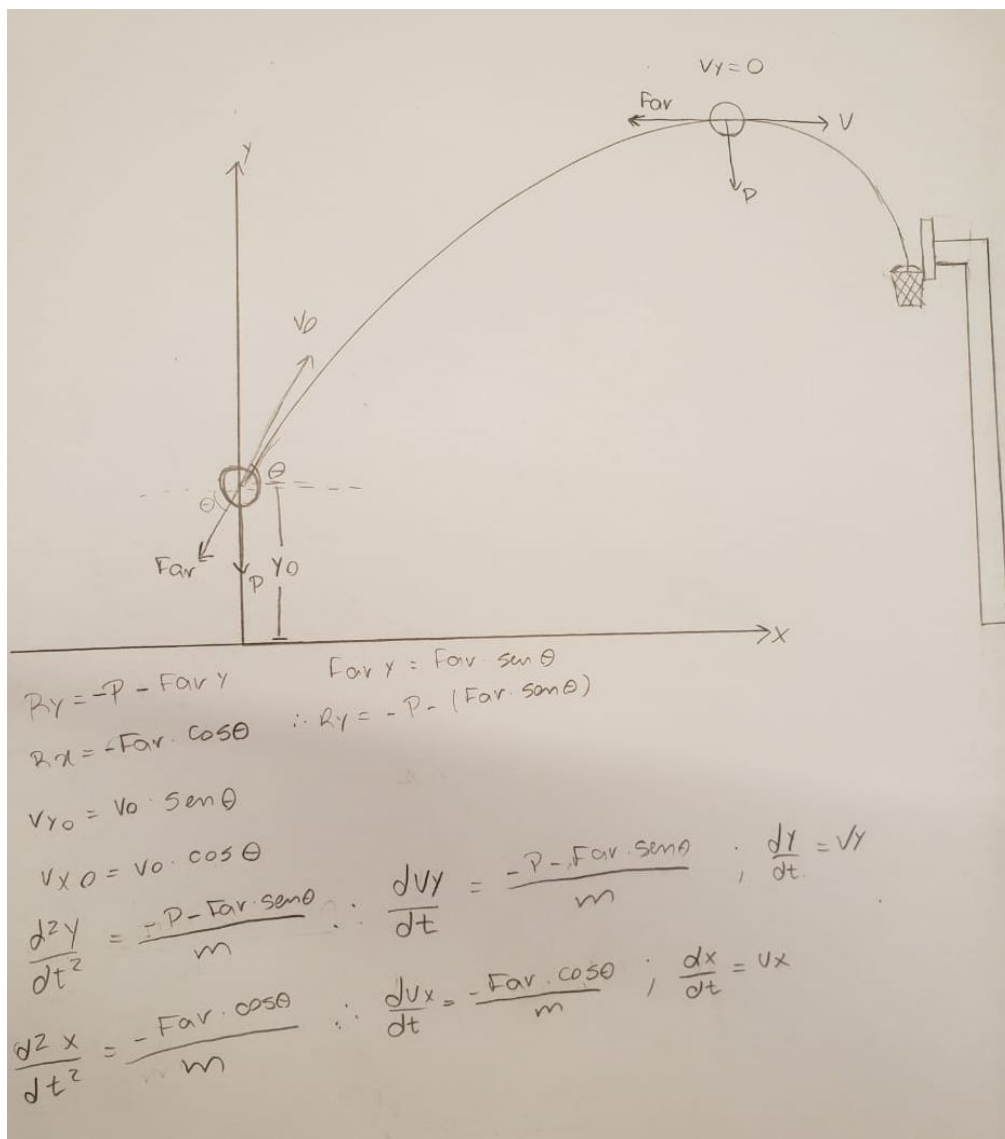 Vy = 0
Far
V
P
Y
V0
θ
θ
Far
P
Y0
X
Ry = -P - Far Y
Far Y = Far · sen θ
Rx = -Far · cosθ ∴ Ry = -P - (Far · senθ)
Vy0 = V0 · sen θ
Vx0 = V0 · cos θ
d²y/dt² = -P - Far · senθ/m ∴ dvy/dt = -P - Far · senθ/m ; dy/dt = Vy
d²x/dt² = -Far · cosθ/m ∴ dvx/dt = -Far · cosθ/m ; dx/dt = Vx